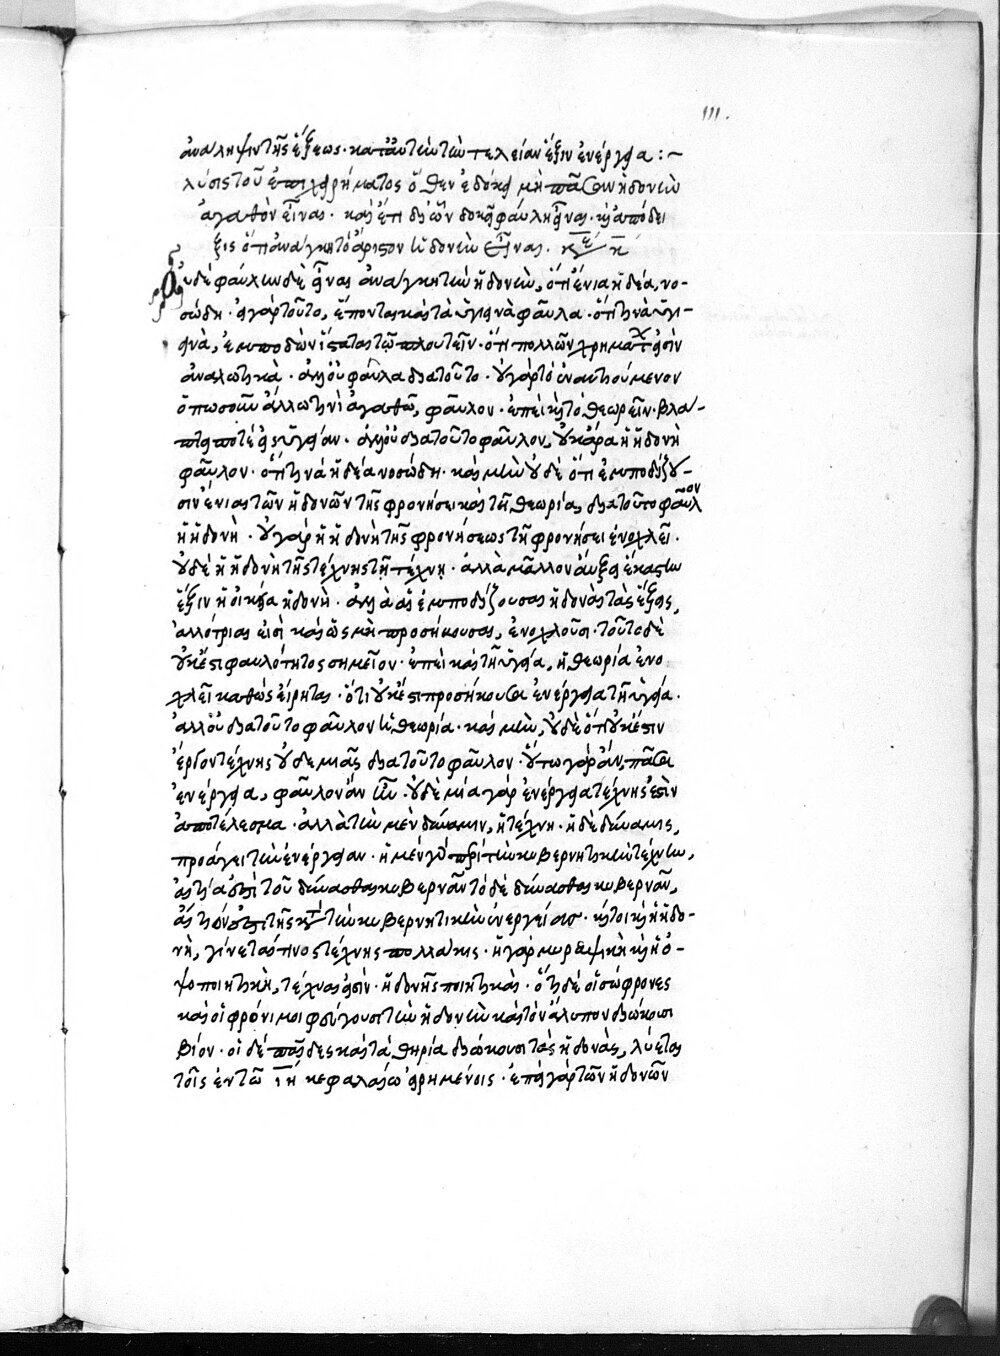 111.
ἀνάληψιν τῆς ἕξεως· κατὰ αὐτὴν τὴν τελείαν ἕξιν ἐνέργεια :~
λύσις τοῦ ἐπιχειρήματος ὅθεν ἐδόκει μὴ πᾶσαν ἡδονὴν
ἀγαθὸν εἶναι· καὶ ἔτι δι' ὧν δοκεῖ φαύλη εἶναι· καὶ ἀπόδει
ξις ὅτι ἀναγκη τὸ ἄριστον ἡδονὴν εἶναι. κε κ
Οὐδὲ φαύλην δὲ εἶναι ἀνάγκη τὴν ἡδονὴν, ὅτι ἔνια ἡδέα, νο-
σώδη· εἰ γὰρ τοῦτο, ἔσονται καὶ τὰ ὑγιεινὰ φαῦλα· ὅτι τινὰ ὑγι-
εινὰ, ἐμποδὼν ἵσταται τῷ πλουτεῖν· ὅτι πολλῶν χρημάτων εἰσὶν
ἀναλωτικὰ· ἀλλ' οὐ φαῦλα διατοῦτο· οὐ γὰρ τὸ ἐναντιούμενον
ὁπωσοῦν ἄλλω τινὶ ἀγαθῶ, φαῦλον· ἐπεὶ καὶ τὸ θεωρεῖν· βλά-
πτει ποτὲ εἰς ὑγείαν· ἀλλ' οὐ διατοῦτο φαῦλον, οὐκ ἄρα ἡ ἡδονὴ
φαῦλον· ὅτι τινὰ ἡδέα νοσώδη· καὶ μὴν οὐδὲ ὅτι ἐμποδίζου-
σιν ἔνιαι τῶν ἡδονῶν τῆ φρονήσει καὶ τῆ θεωρία, διατοῦτο φαῦλον
ἡ ἡδονὴ· οὐ γὰρ ἡ ἡδονὴ τῆς φρονήσεως τῆ φρονήσει ἐνοχλεῖ·
οὐδὲ ἡ ἡδονὴ τῆς τέχνης τῆ τέχνη· ἀλλὰ μᾶλλον αὔξει ἑκάστην
ἕξιν ἡ οἰκεία ἡδονὴ· ἀλλὰ αἱ ἐμποδίζουσαι ἡδοναὶ τὰς ἕξεις,
ἀλλότριαι εἰσὶ καὶ ὡς μὴ προσήκουσαι, ἐνοχλοῦσι· τοῦτο δὲ
οὐκ ἔστι φαυλότητος σημεῖον· ἐπεὶ καὶ τῆ ὑγεία, ἡ θεωρία ἐνο
χλεῖ καθὼς εἴρηται· ὅτι οὐκ ἔστι προσήκουσα ἐνέργεια τῆ ὑγεία·
ἀλλ' οὐ διατοῦτο φαῦλον ἡ θεωρία· καὶ μὴν, οὐδὲ ὅτι οὐκ ἔστιν
ἔργον τέχνης οὐδεμιᾶς διατοῦτο φαῦλον· οὕτω γὰρ ἂν, πᾶσα
ἐνέργεια, φαῦλον ἂν ἦν· οὐδὲ μία γὰρ ἐνέργεια τέχνης ἐστὶν
ἀποτέλεσμα· ἀλλὰ τὴν μὲν δύναμιν, ἡ τέχνη· ἡ δὲ δύναμις,
προάγει τὴν ἐνέργειαν· ἡ μὲν γὰρ περὶ τὴν κυβερνητικὴν τέχνην,
αἰτία ἐστὶ τοῦ δύνασθαι κυβερνᾶν τὸ δὲ δύνασθαι κυβερνᾶν,
αἴτιόν ἐστι τῆς κατὰ τὴν κυβερνητικὴν ἐνεργείας· καίτοι καὶ ἡ ἡδο-
νὴ, γίνεται ἀπό τινος τέχνης πολλάκις· ἡ γὰρ μυρεψικὴ καὶ ἡ ὀ-
ψοποιητικὴ, τέχναι εἰσὶν· ἡδονῆς ποιητικαὶ· ὅτι δὲ οἱ σώφρονες
καὶ οἱ φρόνιμοι φεύγουσι τὴν ἡδονὴν καὶ τὸν ἄλυπον διώκουσι
βίον· οἱ δὲ παῖδες καὶ τὰ θηρία διώκουσι τὰς ἡδονὰς, λύεται
τοῖς ἐν τῶ ιη κεφαλαίω εἰρημένοις· ἐπεὶ γὰρ τῶν ἡδονῶν